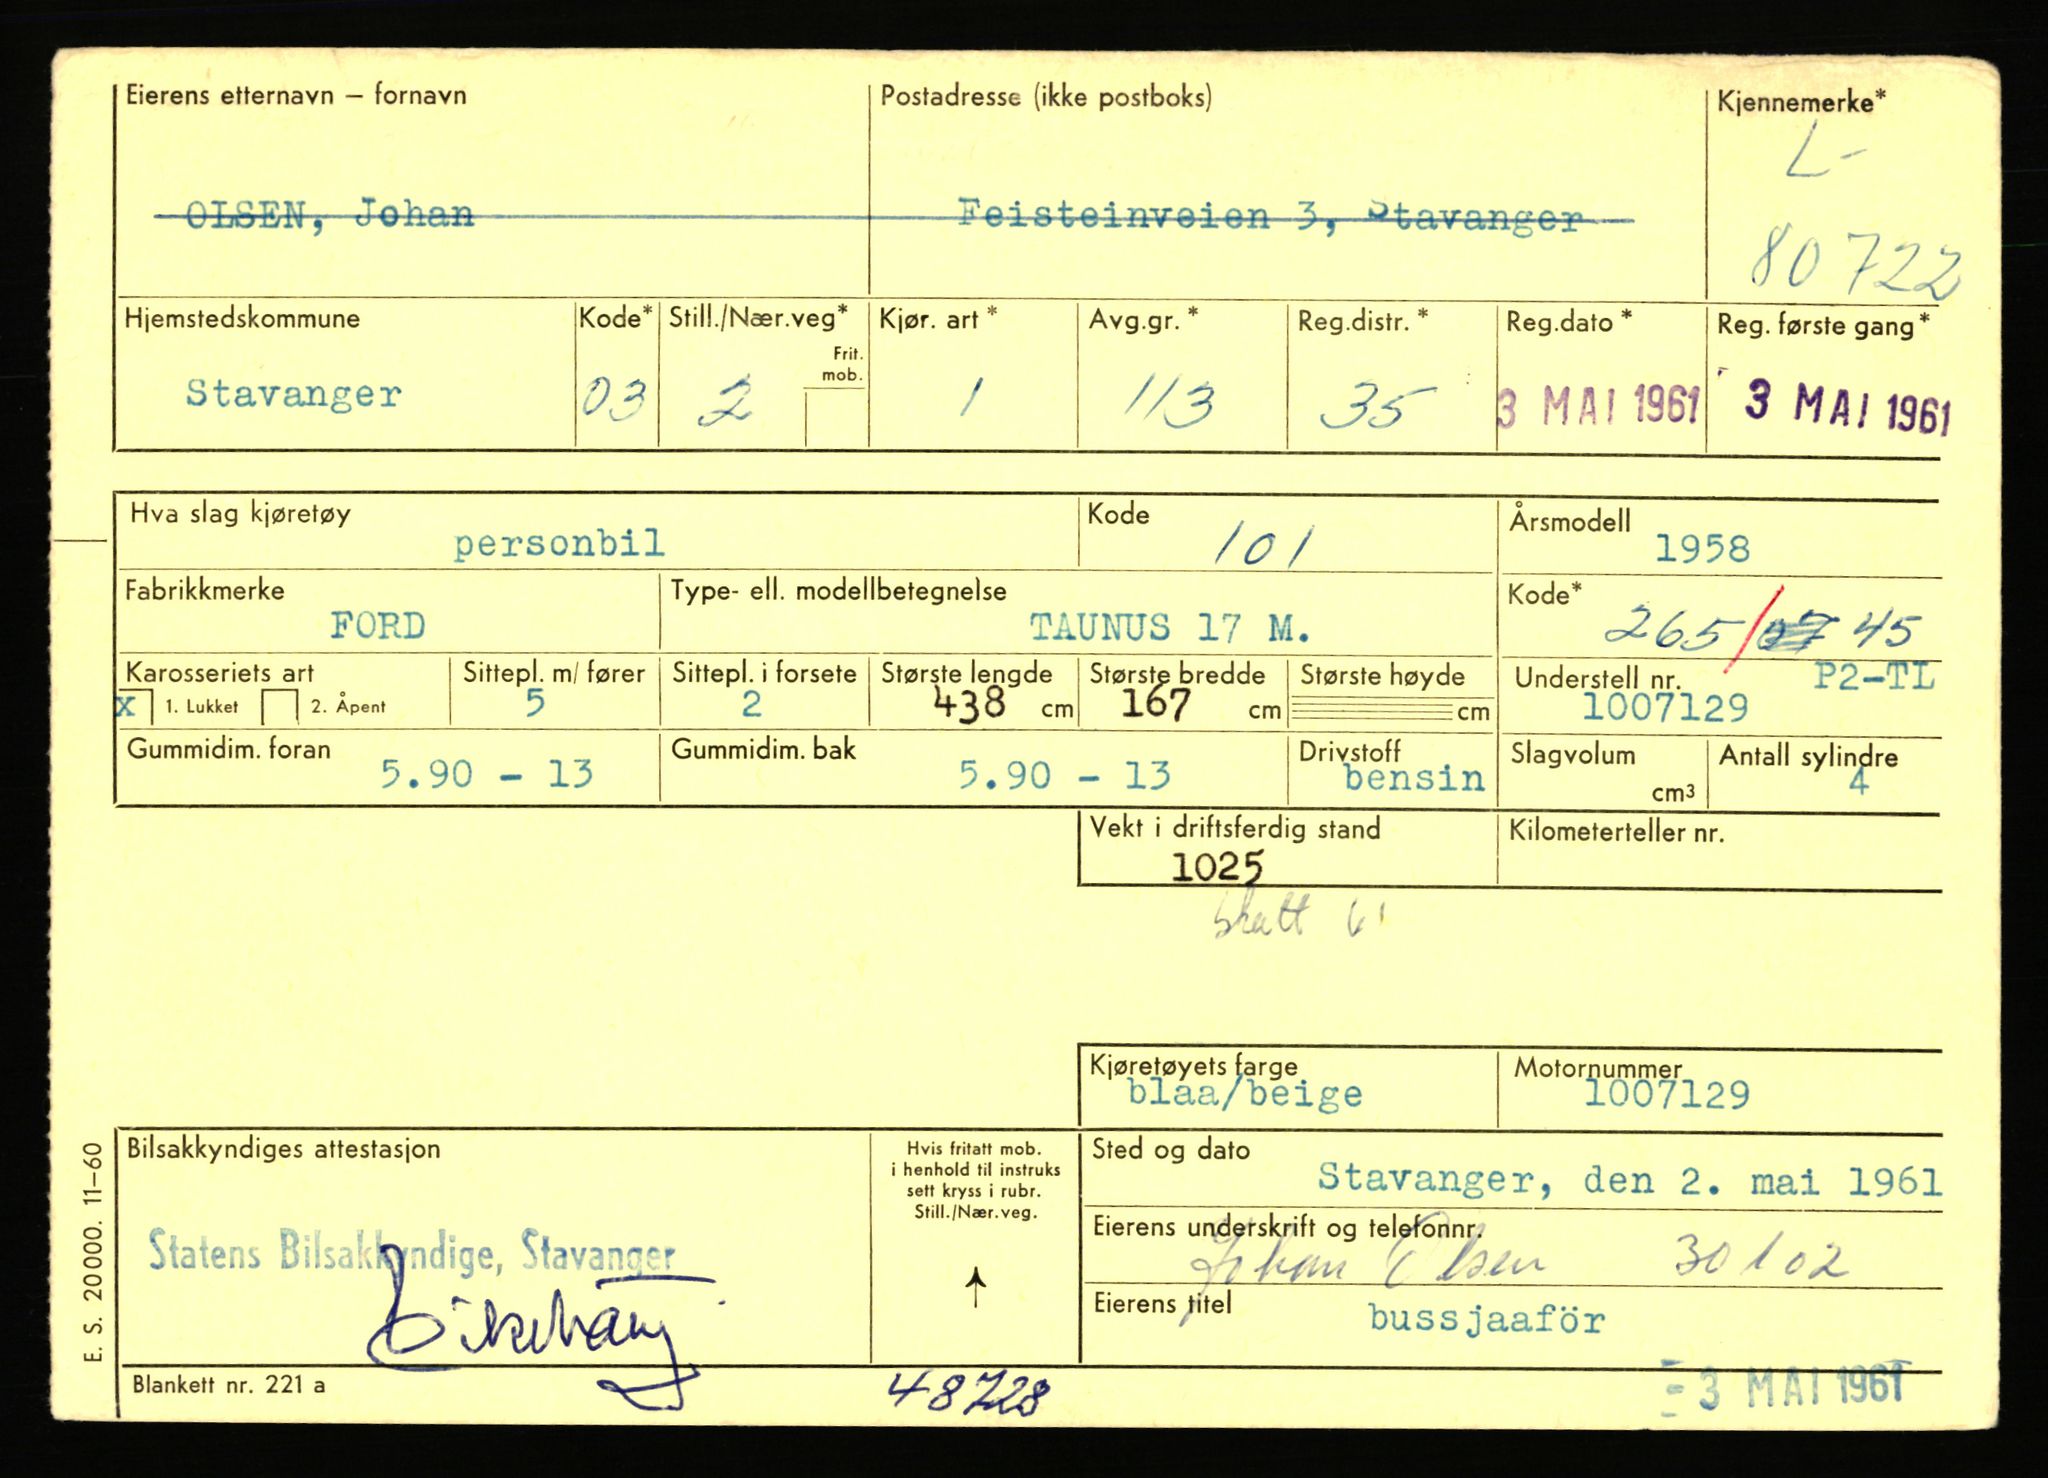 Eierens etternavn – fornavn Postadresse (ikke postboks) Kjennemerke*
L-
OLSEN, Johan Feisteinveien 3, Stavanger
80722
Hjemstedskommune Kode* Still./Nær.veg* Kjør. art * Avg.gr. * Reg.distr. * Reg.dato * Reg. første gang*
Frit. mob.
Stavanger 03 2 1 113 35 3 MAI 1961 3 MAI 1961
Hva slag kjøretøy Kode Årsmodell
personbil 101 1958
Fabrikkmerke Type- ell. modellbetegnelse Kode*
FORD TAUNUS 17 M. 265/ 45
Karosseriets art Sittepl. m/ fører Sittepl. i forsete Største lengde Største bredde Største høyde Understell nr. P2-TL
x 1. Lukket 2. Åpent 5 2 438 cm 167 cm cm 1007129
Gummidim. foran Gummidim. bak Drivstoff Slagvolum Antall sylindre
5.90 - 13 5.90 - 13 bensin cm³ 4
Vekt i driftsferdig stand Kilometerteller nr.
1025
skatt 61
Kjøretøyets farge Motornummer
blaa/beige 1007129
Bilsakkyndiges attestasjon Hvis fritatt mob. Sted og dato
i henhold til instruks
sett kryss i rubr.
Still./Nær.veg.
Stavanger, den 2. mai 1961
Eierens underskrift og telefonnr.
Statens Bilsakkyndige, Stavanger Johan Olsen 30102
Eierens titel
bussjaaför
Blankett nr. 221 a 48728 - 3 MAI 1961
E. S. 20000. 11-60